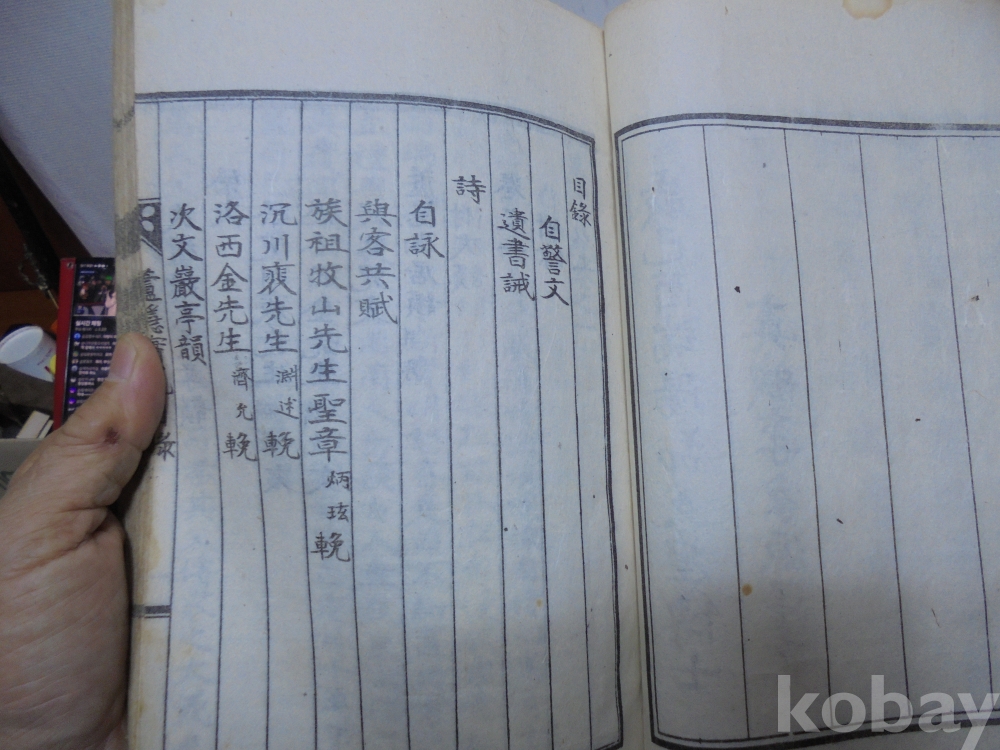 目錄
自警文
遺書誡
詩
自詠
與客共賦
族祖牧山先生聖章 炳玹 輓
沉川裵先生 淵述 輓
洛西金先生 濟允 輓
次文巖亭韻
kobay